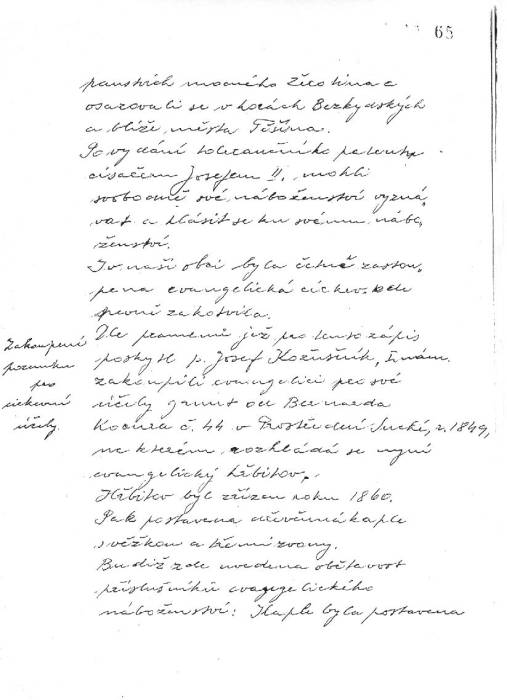 65
panstvích mocného Žerotína a
osazovali se v horách Bezkydských
a blíže města Těšína.
Po vydání tolerančního patentu
císařem Josefem II. mohli
svobodně své náboženství vyzná-
vat a hlásit se ku svému nábo-
ženství.
I v naší obci byla četně zastou-
pena evangelická církev. zde
pevně zakotvila.
Zakoupení
pozemku
pro
církevní
účely.
Dle pramenů jež pro tento zápis
poskytl p. Josef Kožušník,
zakoupili evangelíci pro své
účely grunt od Bernarda
Kocura č. 44 v Prostřední Suché, r. 1849,
na kterém rozkládá se nyní
evangelický hřbitov.
Hřbitov byl zřízen roku 1860.
Pak postavena dřevěnná kaple
s věžkou a třemi zvony.
Budiž zde uvedena obětavost
příslušníků evagegelického
náboženství: Kaple byla postavena